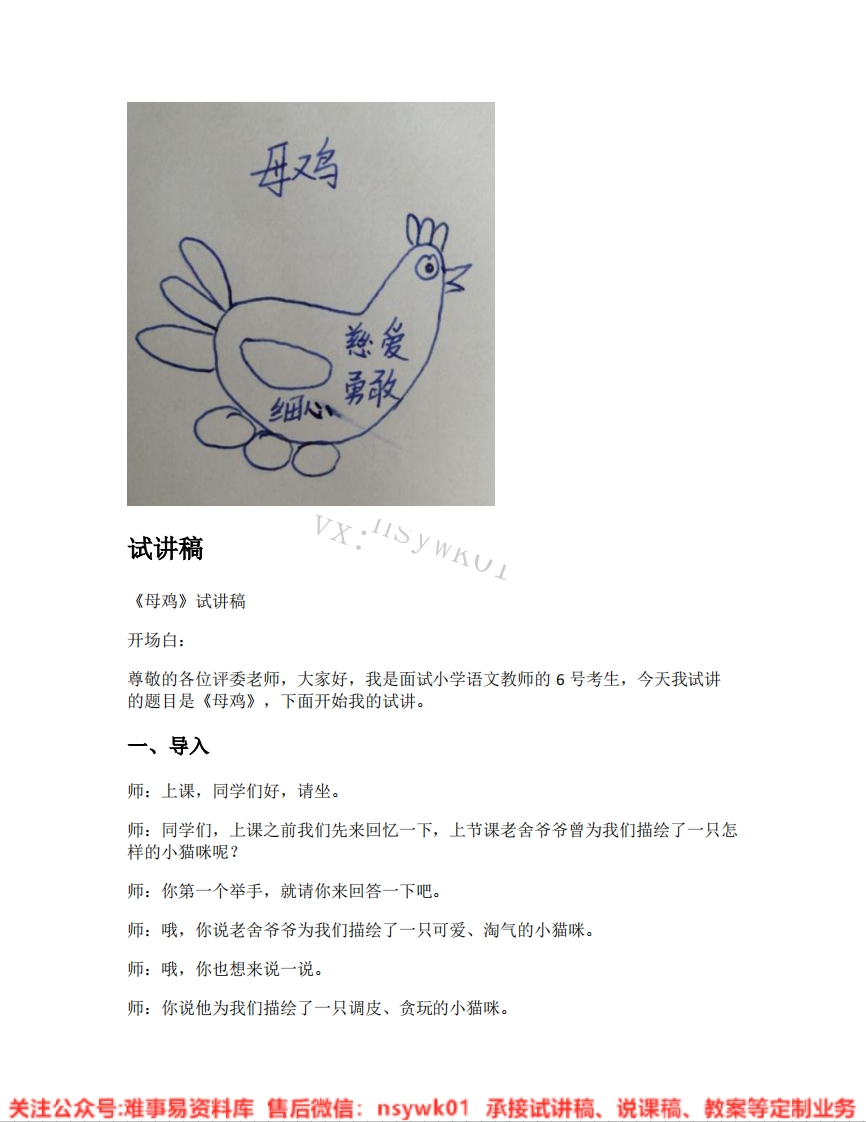 母鸡
慈爱
勇敢
细心
VX:nsywk01
试讲稿
《母鸡》试讲稿
开场白：
尊敬的各位评委老师，大家好，我是面试小学语文教师的 6 号考生，今天我试讲
的题目是《母鸡》，下面开始我的试讲。
一、导入
师：上课，同学们好，请坐。
师：同学们，上课之前我们先来回忆一下，上节课老舍爷爷曾为我们描绘了一只怎
样的小猫咪呢？
师：你第一个举手，就请你来回答一下吧。
师：哦，你说老舍爷爷为我们描绘了一只可爱、淘气的小猫咪。
师：哦，你也想来说一说。
师：你说他为我们描绘了一只调皮、贪玩的小猫咪。
关注公众号:难事易资料库 售后微信：nsywk01 承接试讲稿、说课稿、教案等定制业务